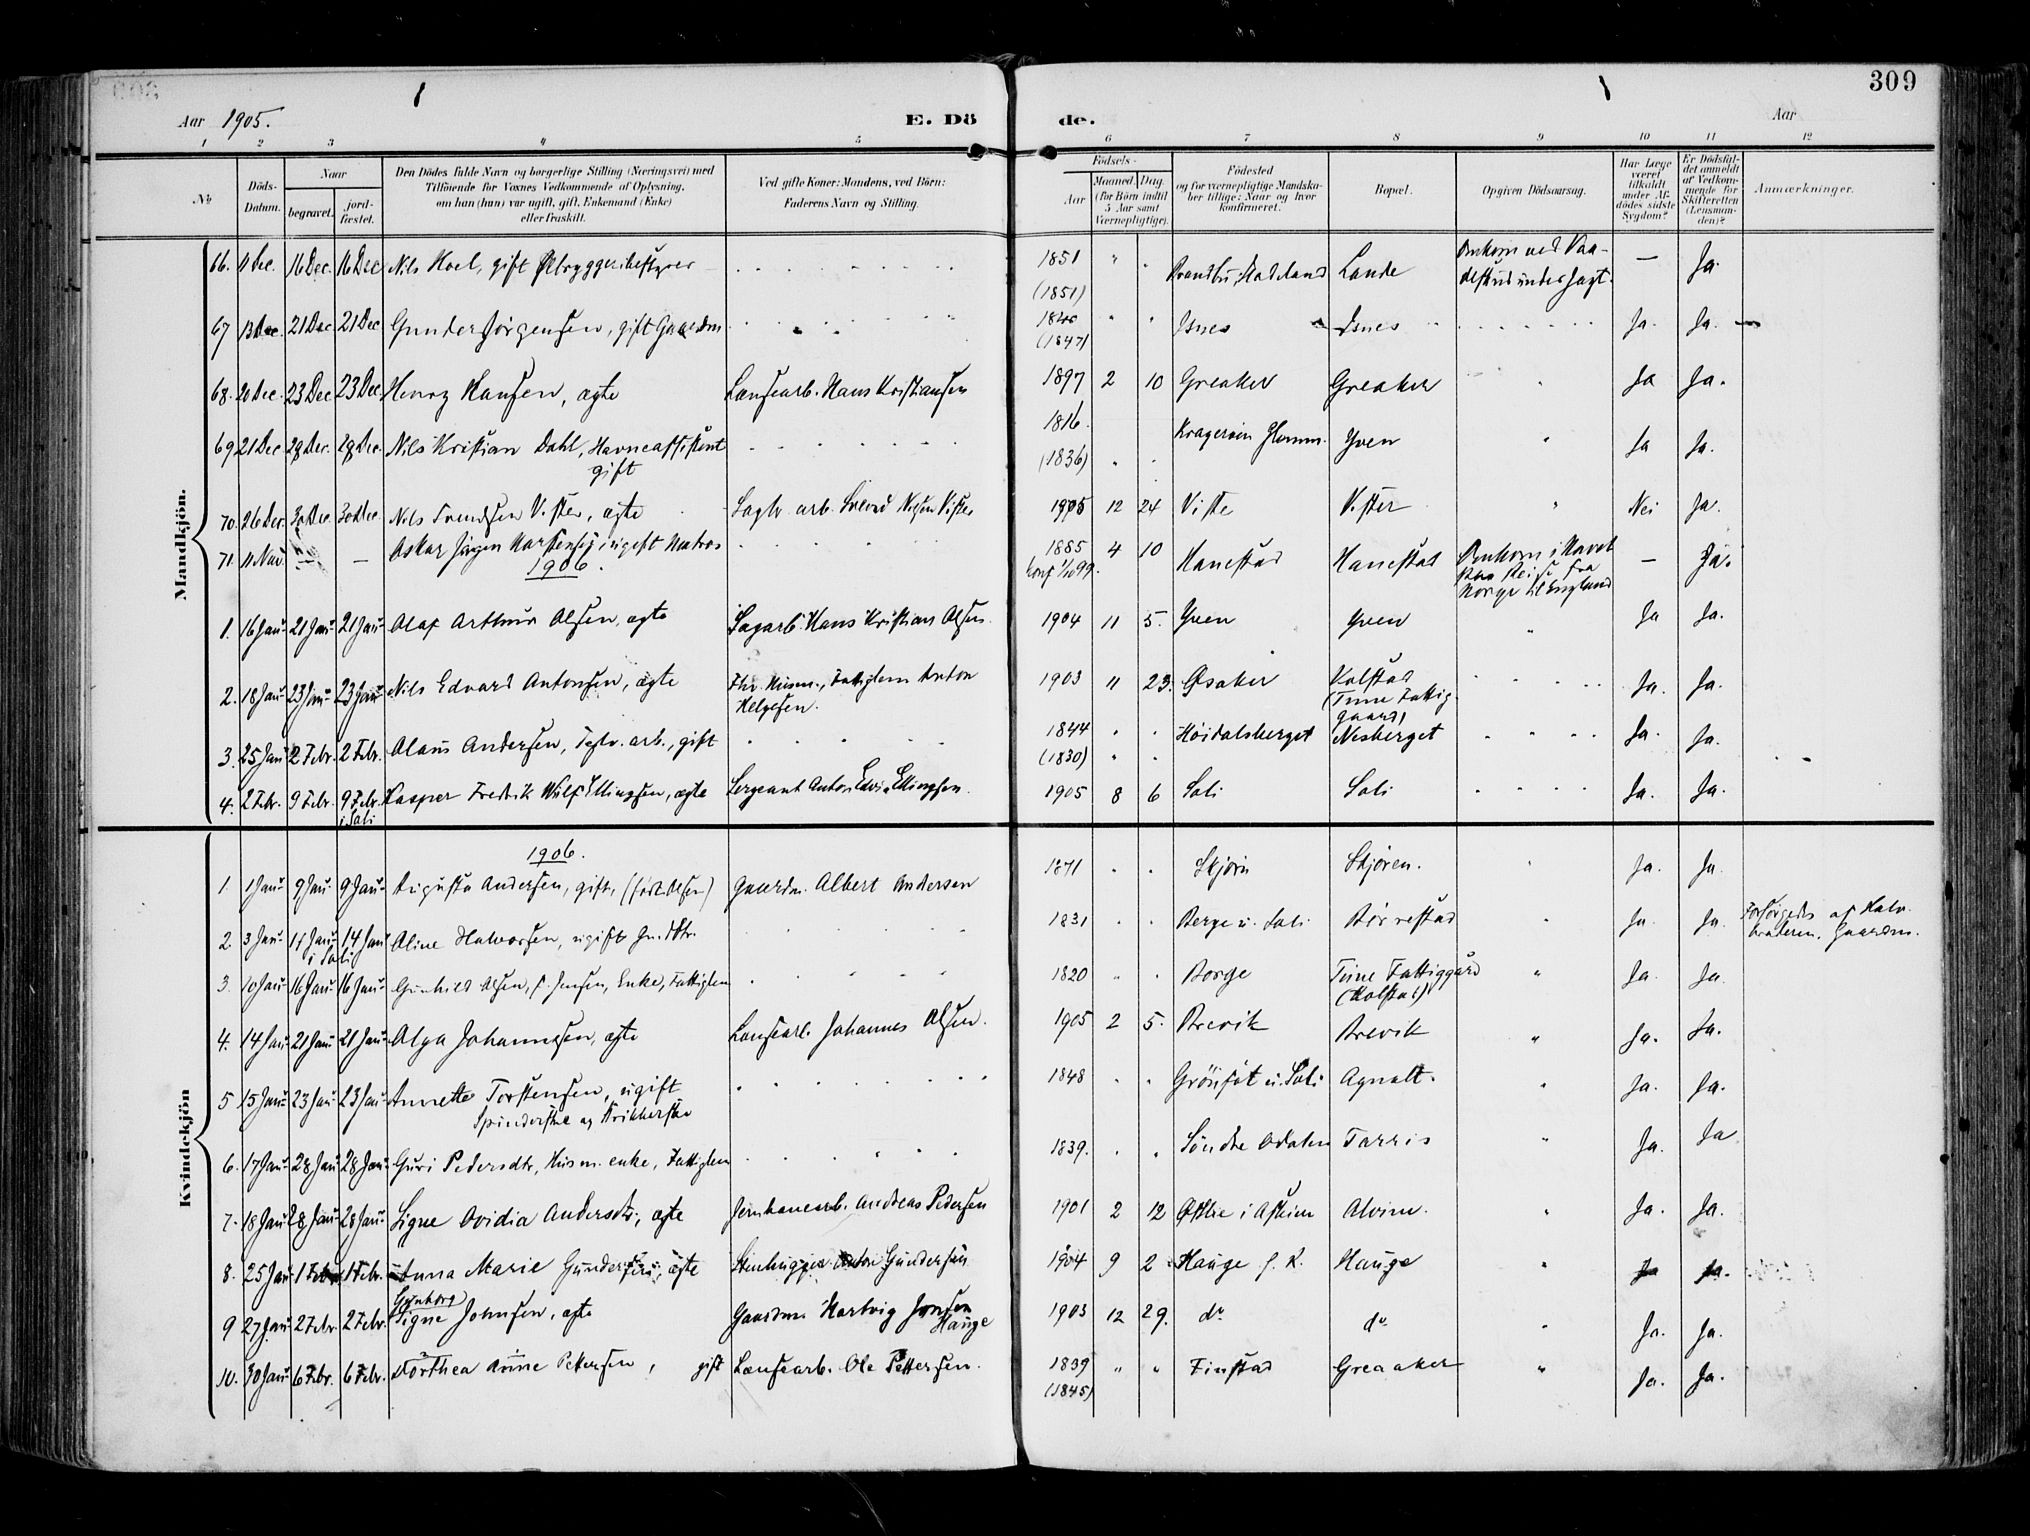 309
Aar 1905.
E. Dö de.
Aar
1 2 3 4 5 6 7 8 9 10 11 12
No
Döds-Datum.
Naar
begravet.
jordfæstet.
Den Dödes fulde Navn og borgerlige Stilling (Næringsvei) med
Tilföiende for Voxnes Vedkommende af Oplysning,
om han (hun) var ugift, gift, Enkemand (Enke)
eller fraskilt.
Ved gifte Koner: Mandens, ved Börn:
Faderens Navn og Stilling.
Födsels-
Aar
Maaned. Dag.
(for Börn indtil
5 Aar samt
Værnepligtige).
Födested
og for værnepligtige Mandska-
ber tillige: Naar og hvor
konfirmeret.
Bopæl.
Opgiven Dödsaarsag.
Har Læge
været
tilkaldt
under Af-
dödes sidste
Sygdom?
Er Dödsfal-
det anmeldt
af Vedkom-
mende for
Skifteretten
(Lensman-
den)?
Anmærkninger.
Mandkjön.
66. 11 Dec. 16 Dec. 16 Dec Nils Hoel, gift Ølbryggeribestyrer 1851 (1851) Brandbu, Hadeland Lande Omkom ved Vaadeskud under Jagt. — Ja.
67 13 Dec. 21 Dec 21 Dec Gunder Jörgensen, gift Gaardm (1847) Isnes Isnes Ja. Ja.
68. 20 Dec. 23 Dec 23 Dec Henry Hansen, ægte Lensearb. Hans Kristiansen 1897 2 10 Greaker Greaker Ja Ja.
69 21 Dec 28 Dec. 28 Dec. Nils Kristian Dahl, Havneassistent gift 1816. (1836) Kragerøen Glomm. Yven Ja Ja.
70. 26 Dec. 30 Dec. 30 Dec. Nils Svendsen Vister, ægte Sagbr. arb. Svend Nilsen Vister 1905 12 24 Viste Vister Nei Ja.
71. 11 Nov. — — Oskar Jörgen Martensen, ugift Matros 1885 4 10 Hanestad Hanestad Omkom i Havet paa Reise fra Norge til England — Ja.
1906.
1. 16 Jan 21 Jan 21 Jan Olaf Arthur Olsen, ægte Sagarb. Hans Kristian Olsen. 1904 11 5. Yven Yven Ja Ja.
2. 18 Jan 23 Jan 23 Jan Nils Edvard Antonsen, ægte Fhv. Husm., Fattiglem Anton Helgesen. 1903 11 23. Øsaker Kolstad (Tune Fattiggaard) Ja. Ja.
3. 25 Jan 2 Febr. 2 Febr. Olaus Andersen, Teglv. arb., gift 1844 (1830) Höidalsberget Nesberget Ja. Ja.
4. 2 Febr. 9 Febr. 9 Febr. i Soli Kasper Fredrik Wulf Ellingsen, ægte Sergeant Anton Edvin Ellingsen. 1905 8 6 Soli Soli Ja. Ja.
Kvindekjön
1906.
1. 1 Jan 9 Jan. 9 Jan Augusta Andersen, gift, (født Olsen) Gaardm. Albert Andersen 1871 Skjøren Skjøren. Ja. Ja
2. 3 Jan 14 Jan i Soli 14 Jan Aline Halvorsen, ugift Gm. dtr. 1831 Berge u. Soli Börrestad Ja. Ja. Forsørgedes af Halvbroderen, Gaardm.
3. 10 Jan 16 Jan 16 Jan Gunhild Olsen, f. Jensen, Enke, Fattiglem 1820 Borge Tune Fattiggård (Kolstad) Ja. Ja
4. 14 Jan 21 Jan 21 Jan Olga Johannesen, ægte Lensearb. Johannes Olsen. 1905 2 5. Brevik Brevik Ja. Ja.
5 15 Jan 23 Jan 23 Jan Annette Torstensen, ugift Spinderske og Strikkerske 1848 Grönsöt u. Soli Agnalt. Ja. Ja.
6. 17 Jan 28 Jan 28 Jan Guri Pedersdtr, Husm. enke, Fattiglem 1839. Söndre Odalen Tarris Ja. Ja
7. 18 Jan 28 Jan 28 Jan Signe Ovidia Andersdtr., ægte Jernbanearb. Andreas Pedersen 1901 2 12 i Askim Alvim. Ja. Ja.
8. 25 Jan 1 Febr 1 Febr. Anna Marie Gundersen, ægte Stenhugger Anton Gundersen 1904 9 2 Hauge Hauge Ja Ja.
9 27 Jan 2 Febr. 2 Febr. Signe Synborg Johnsen, ægte Gaardm Hartvig Jonsen Hauge 1903 12 29. do do Ja. Ja.
10. 30 Jan 6 Febr. 6 Febr. Dorthea Anne Pettersen, gift Lensearb. Ole Pettersen. 1839 (1845) Finstad Greaaker Ja. Ja.